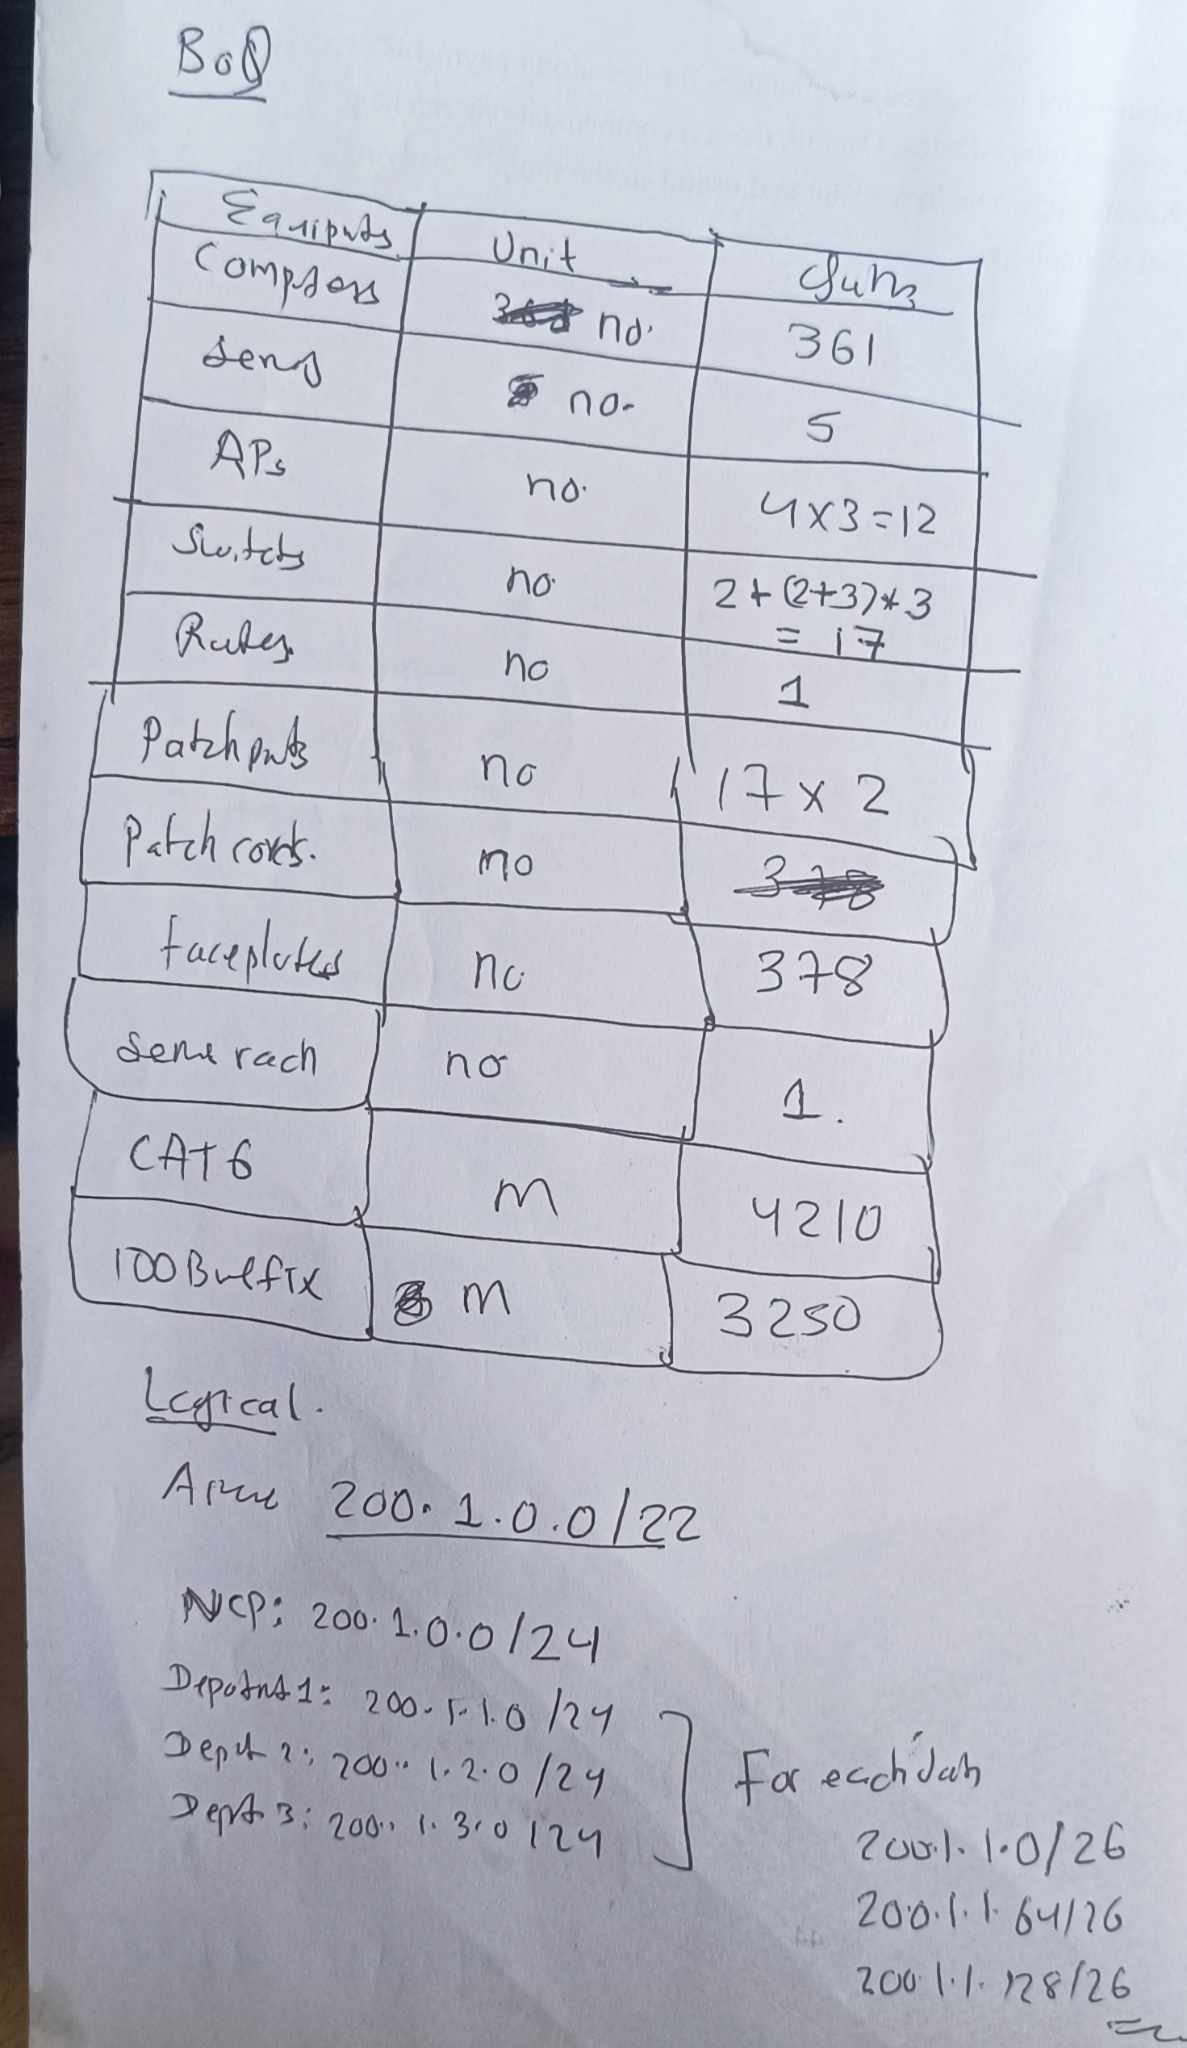 BoQ
Equipnts Unit Qunts
Compters no. 361
Servs no. 5
APs no. 4x3=12
Switchs no 2+(2+3)*3
= 17
Routes no 1
Patch pnts no 17 x 2
Patch cords. no
faceplates no 378
Server rack no 1.
CAT 6 m 4210
100Basefix m 3250
Logical.
200.1.0.0/22
NCP: 200.1.0.0/24
Depatnt 1: 200.1.1.0/24
Dept 2: 200.1.2.0/24
Dept 3: 200.1.3.0/24
For each lab
200.1.1.0/26
200.1.1.64/26
200.1.1.128/26